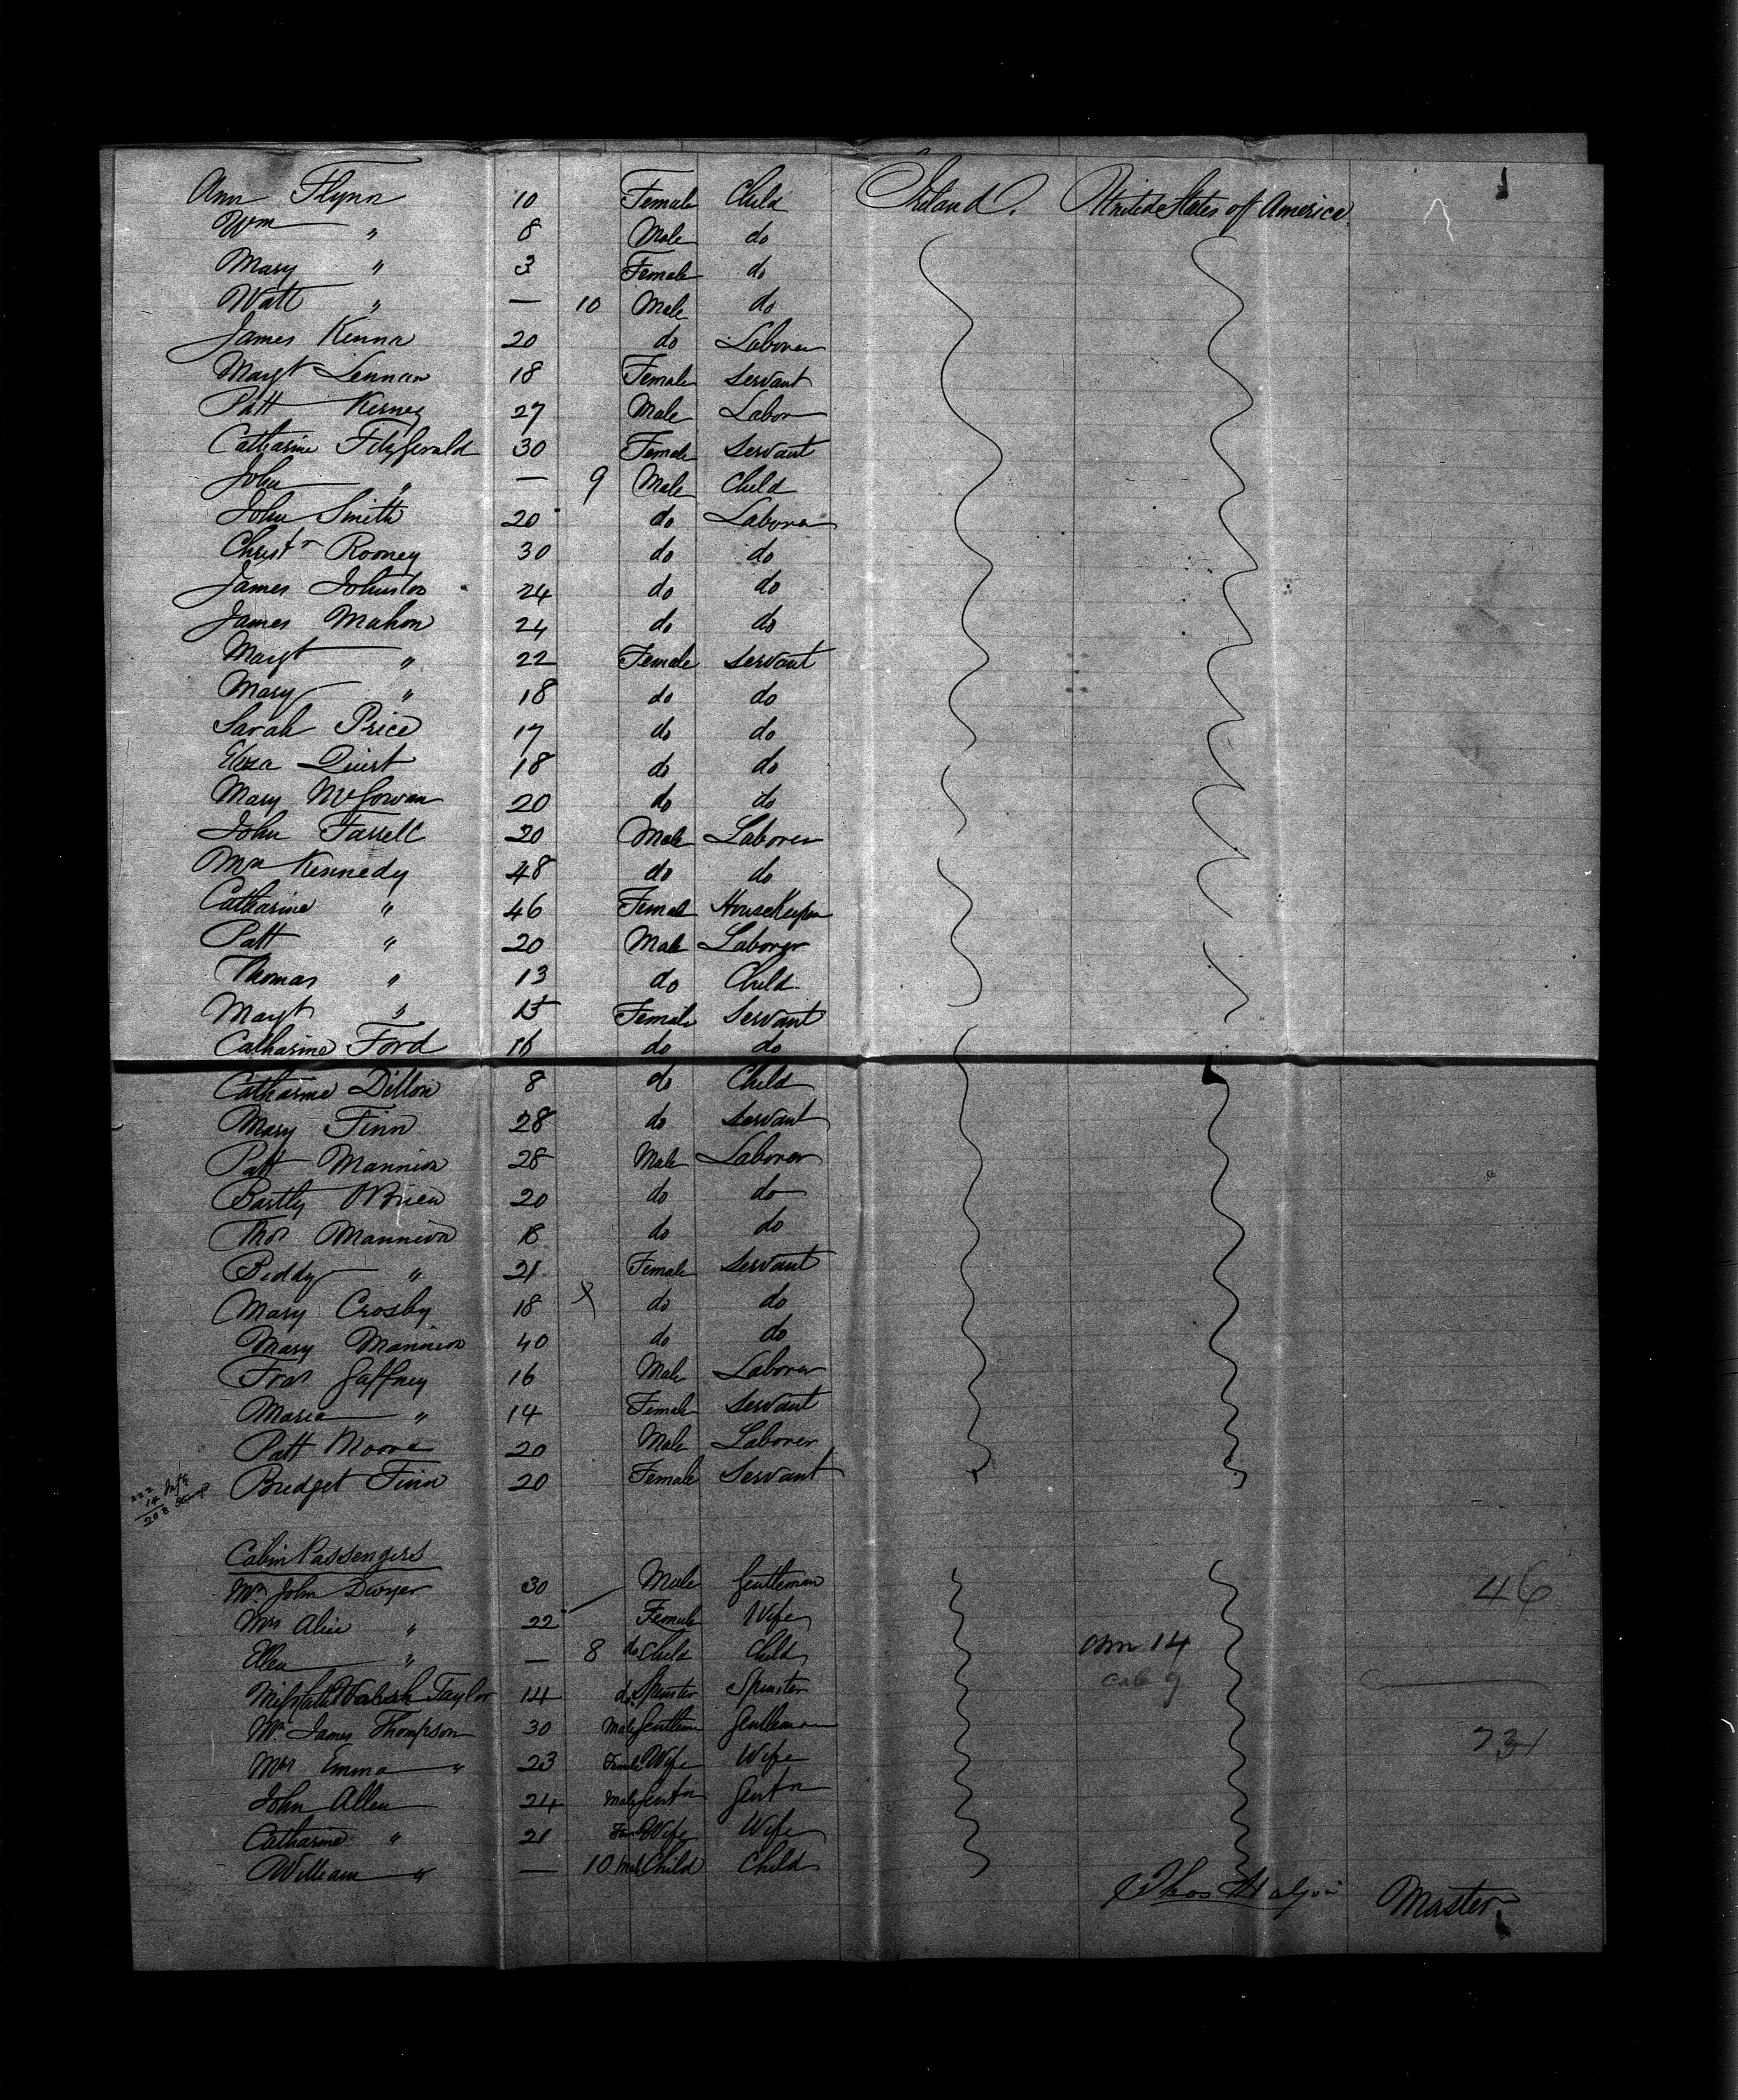 Ann Flynn 10 Female Child Ireland. United States of America
Wm " 8 Male do
Mary " 3 Female do
Watt " — 10 Male do
James Kenna 20 do Laborer
Margt Lennan 18 Female Servant
Patt Kerney 27 Male Labor
Catharine Fitzgerald 30 Female Servant
John " — 9 Male Child
John Smith 20 do Laborer
Christr Rooney 30 do do
James Johnston 24 do do
James Mahon 24 do do
Margt " 22 Female Servant
Mary " 18 do do
Sarah Price 17 do do
Eliza 18 do do
Mary McGowan 20 do do
John Farrell 20 Male Laborer
Kennedy 48 do do
Catharine " 46 Female HouseKeeper
Patt " 20 Male Laborer
Thomas " 13 do Child
Margt " 15 Female Servant
Catharine Ford 16 do do
Catharine Dillon 8 do Child
Mary Finn 28 do Servant
Patt Mannion 28 Male Laborer
Bartly OBrien 20 do do
Thos Mannion 18 do do
Biddy " 21 Female Servant
Mary Crosby 18 do do
Mary Mannion 40 do do
Fras Gaffney 16 Male Laborer
Maria " 14 Female Servant
Patt Moore 20 Male Laborer
Bridget Finn 20 Female Servant
222
14
208
Cabin Passengers
Mr. John Dwyer 30 Male Gentleman 46
Mrs Alice " 22 Female Wife
Ellen " — 8 do Child Child Am 14
Miss Taylor 14 do Spinster Spinster cab 9
Mr. James Thompson 30 Male Gentleman Gentleman
Mrs Emma " 23 Female Wife Wife 231
John Allen 24 Male Gentn Gentn
Catharine " 21 Fem Wife Wife
William " — 10 Male Child Child
Thos Master